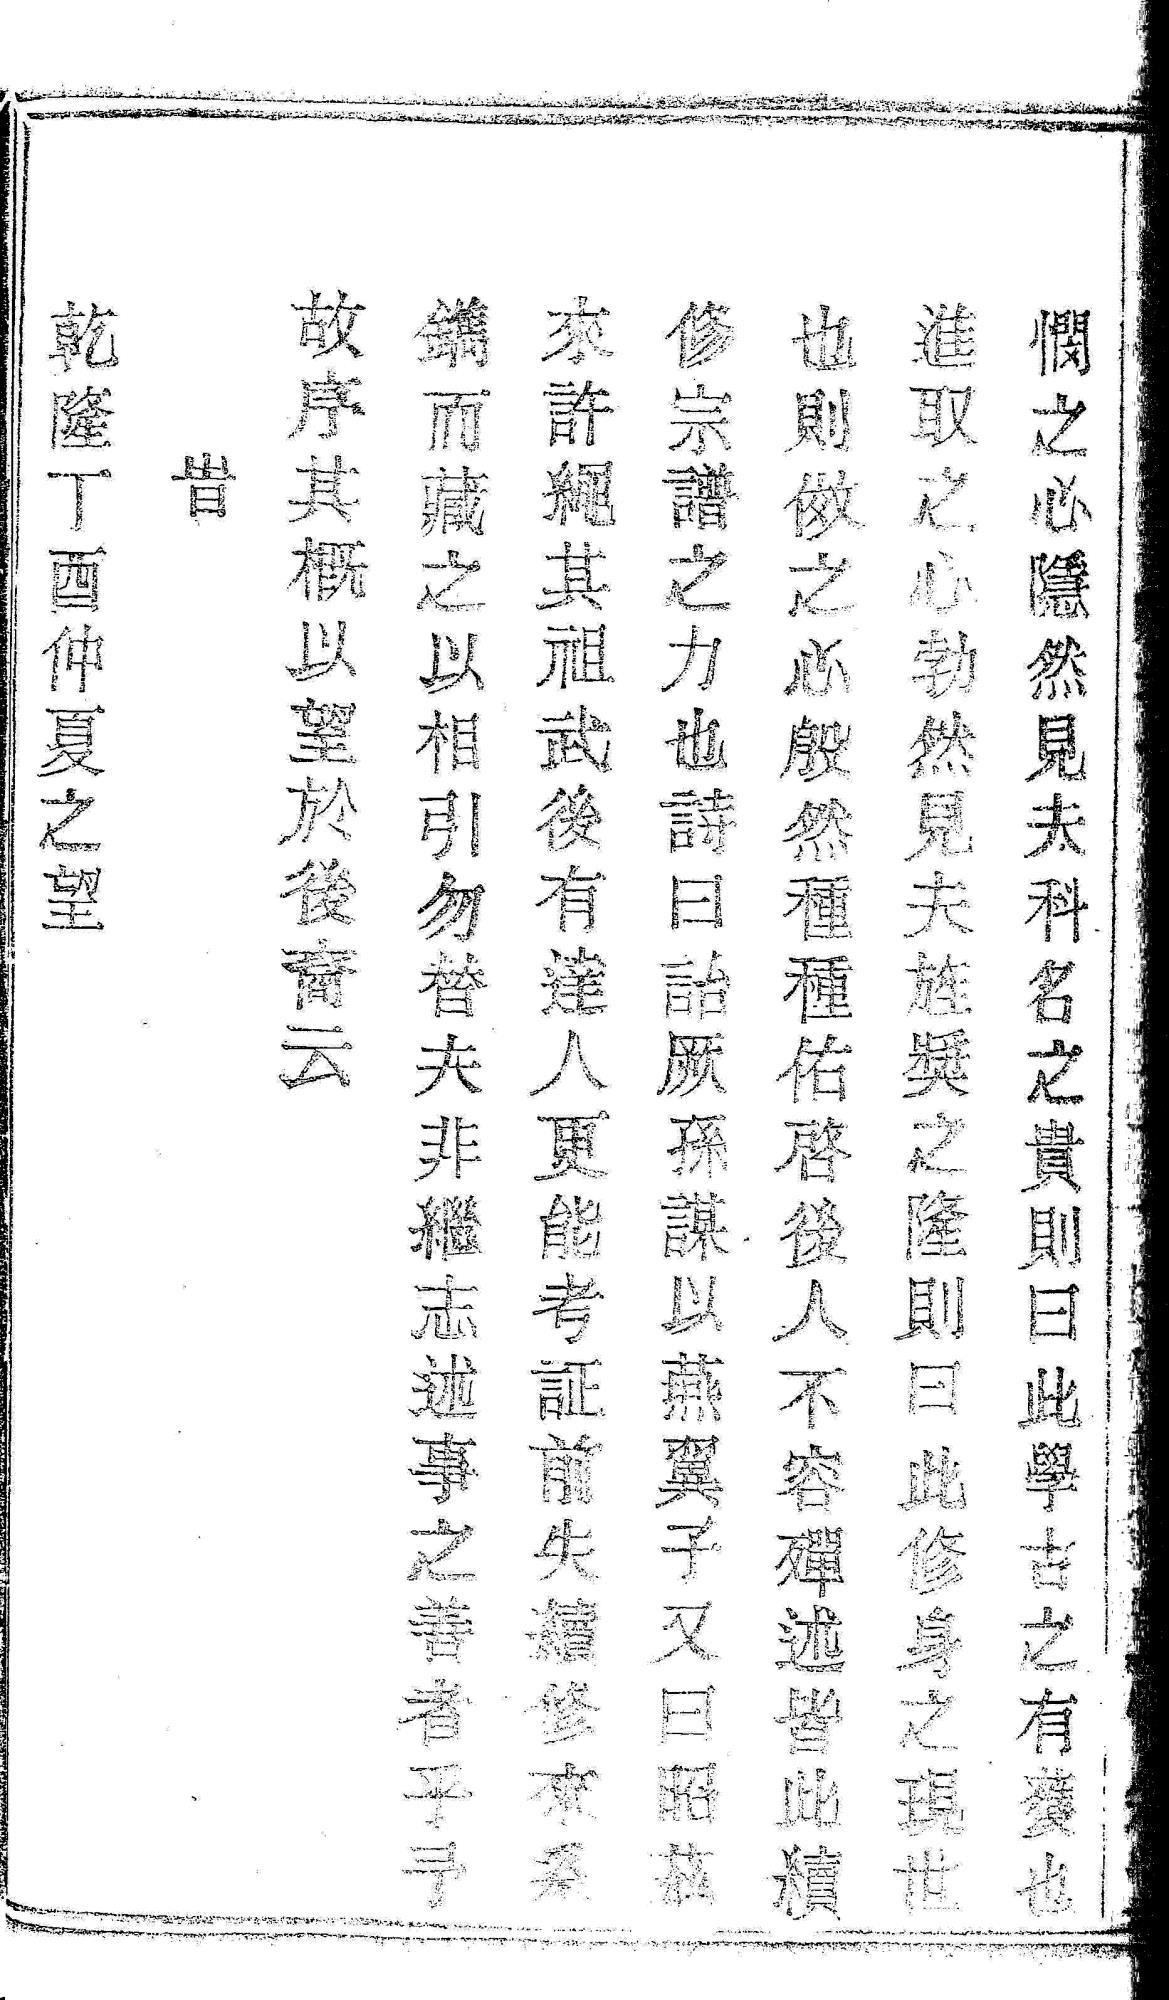 憫之心隱然見夫科名之貴則曰此學古之有獲也
進取之心勃然見夫旌獎之隆則曰此修身之現世
也則傚之心殷然種種佑啓後人不容殫述皆此續
修宗譜之力也詩曰詒厥孫謀以燕翼子又曰昭茲
來許繩其祖武後有達人更能考証前失續修來系
鐫而藏之以相引勿替夫非繼志述事之善者乎予
故序其概以望於後裔云
旹
乾隆丁酉仲夏之望